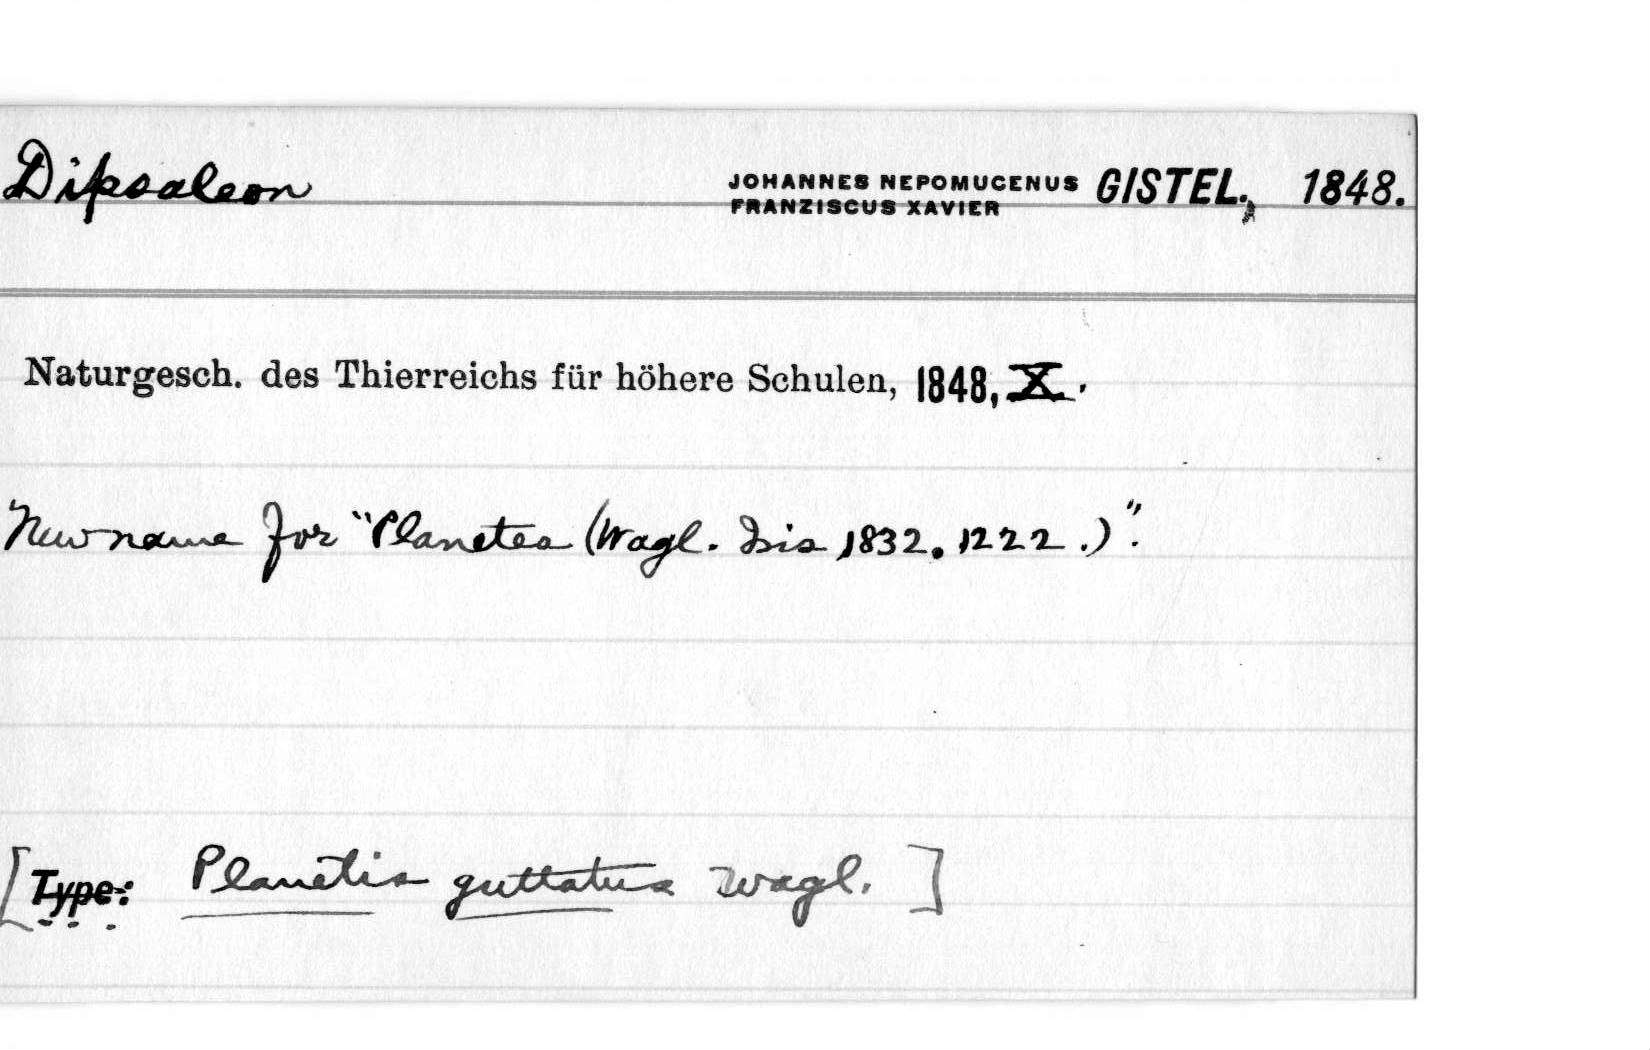 Dipsaleon JOHANNES NEPOMUCENUS FRANZISCUS XAVIER GISTEL., 1848.
Naturgesch. des Thierreichs für höhere Schulen, 1848, X.
New name for "Planetes (Wagl. Isis 1832. 1222.)".
[Type: Planetis guttatus Wagl.]